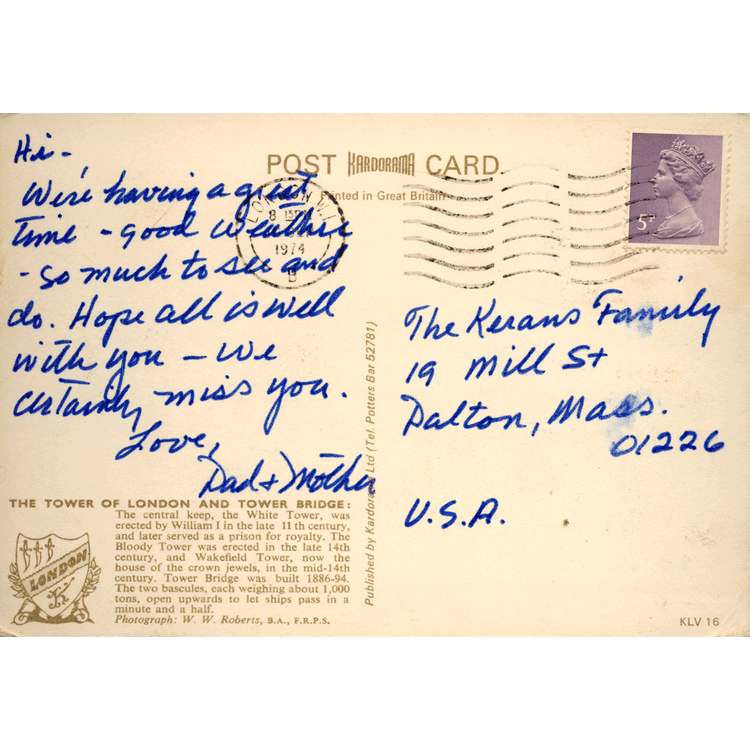 Hi-
We're having a great
time - good weather
- so much to see and
do. Hope all is well
with you - we
certainly miss you.
Love,
Dad + Mother
POST KARDORAMA CARD
Printed in Great Britain
LONDON W.1.
8
1974
B
5P
The Kerans Family
19 Mill St
Dalton, Mass.
01226
U.S.A.
Published by Kardorama Ltd (Tel. Potters Bar 52781)
THE TOWER OF LONDON AND TOWER BRIDGE:
The central keep, the White Tower, was
erected by William I in the late 11th century,
and later served as a prison for royalty. The
Bloody Tower was erected in the late 14th
century, and Wakefield Tower, now the
house of the crown jewels, in the mid-14th
century. Tower Bridge was built 1886-94.
The two bascules, each weighing about 1,000
tons, open upwards to let ships pass in a
minute and a half.
Photograph: W. W. Roberts, B.A., F.R.P.S.
LONDON
K
KLV 16